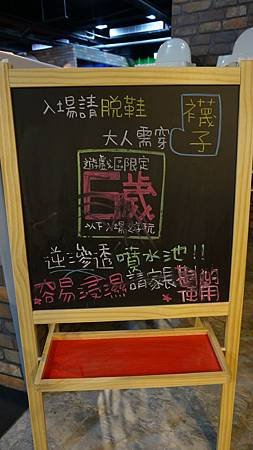 入場請脫鞋
大人需穿襪子
遊戲區限定
6歲
以下入場遊玩
逆滲透噴水池!!
容易浸濕請家長
使用